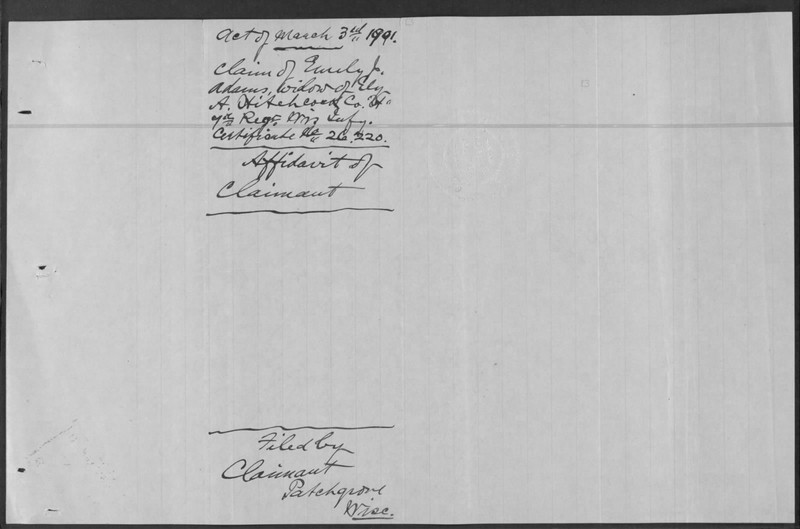 Act of March 3rd 1901.
Claim of Emily J.
Adams, widow of Ely
A. Hitchcock Co. "H"
7th Regt. Wis Infy.
Certificate No 26.220.
Affidavit of
Claimant
Filed by
Claimant
Patchgrove
Wisc.